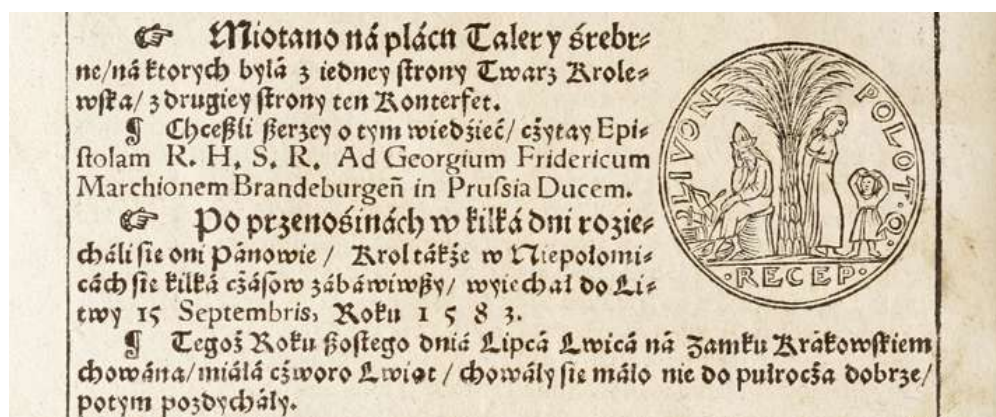 ☞ Miotano ná plácu Talery śrebr⸗
ne/ ná ktorych bylá z iedney ſtrony Twarz Krole⸗
wſka/ z drugiey ſtrony ten Konterfet.
¶ Chceßli ßerzey o tym wiedźieć/ cżytay Epi⸗
ſtolam R. H. S. R. Ad Georgium Fridericum
Marchionem Brandeburgeñ in Pruſsia Ducem.
☞ Po przenośinách w kilká dni roziе⸗
cháli ſie oni Pánowie / Krol tákże w Niepołomi⸗
cách ſie kilká cżáſow zábáwiwßy/ wyiechał do Li⸗
twy 15 Septembris, Roku 1 5 8 3.
¶ Tegoż Roku ßoſtego dniá Lipcá Lwicá ná Zamku Krákowſkiem
chowána/ miáłá cżworo Lwiąt / chowáły ſie máło nie do pułrocża dobrze/
potym pozdycháły.
LIVON POLOT·Q·
·RECEP·